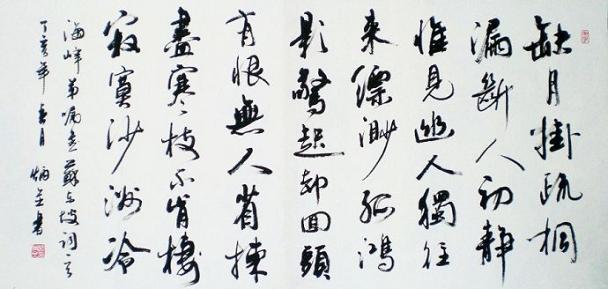 缺月掛疏桐
漏斷人初靜
惟見幽人獨往
來縹渺孤鴻
影驚起却回頭
有恨無人省揀
盡寒枝不肯棲
寂寞沙洲冷
海峰弟囑書蘇東坡詞
丁亥年 春月 書